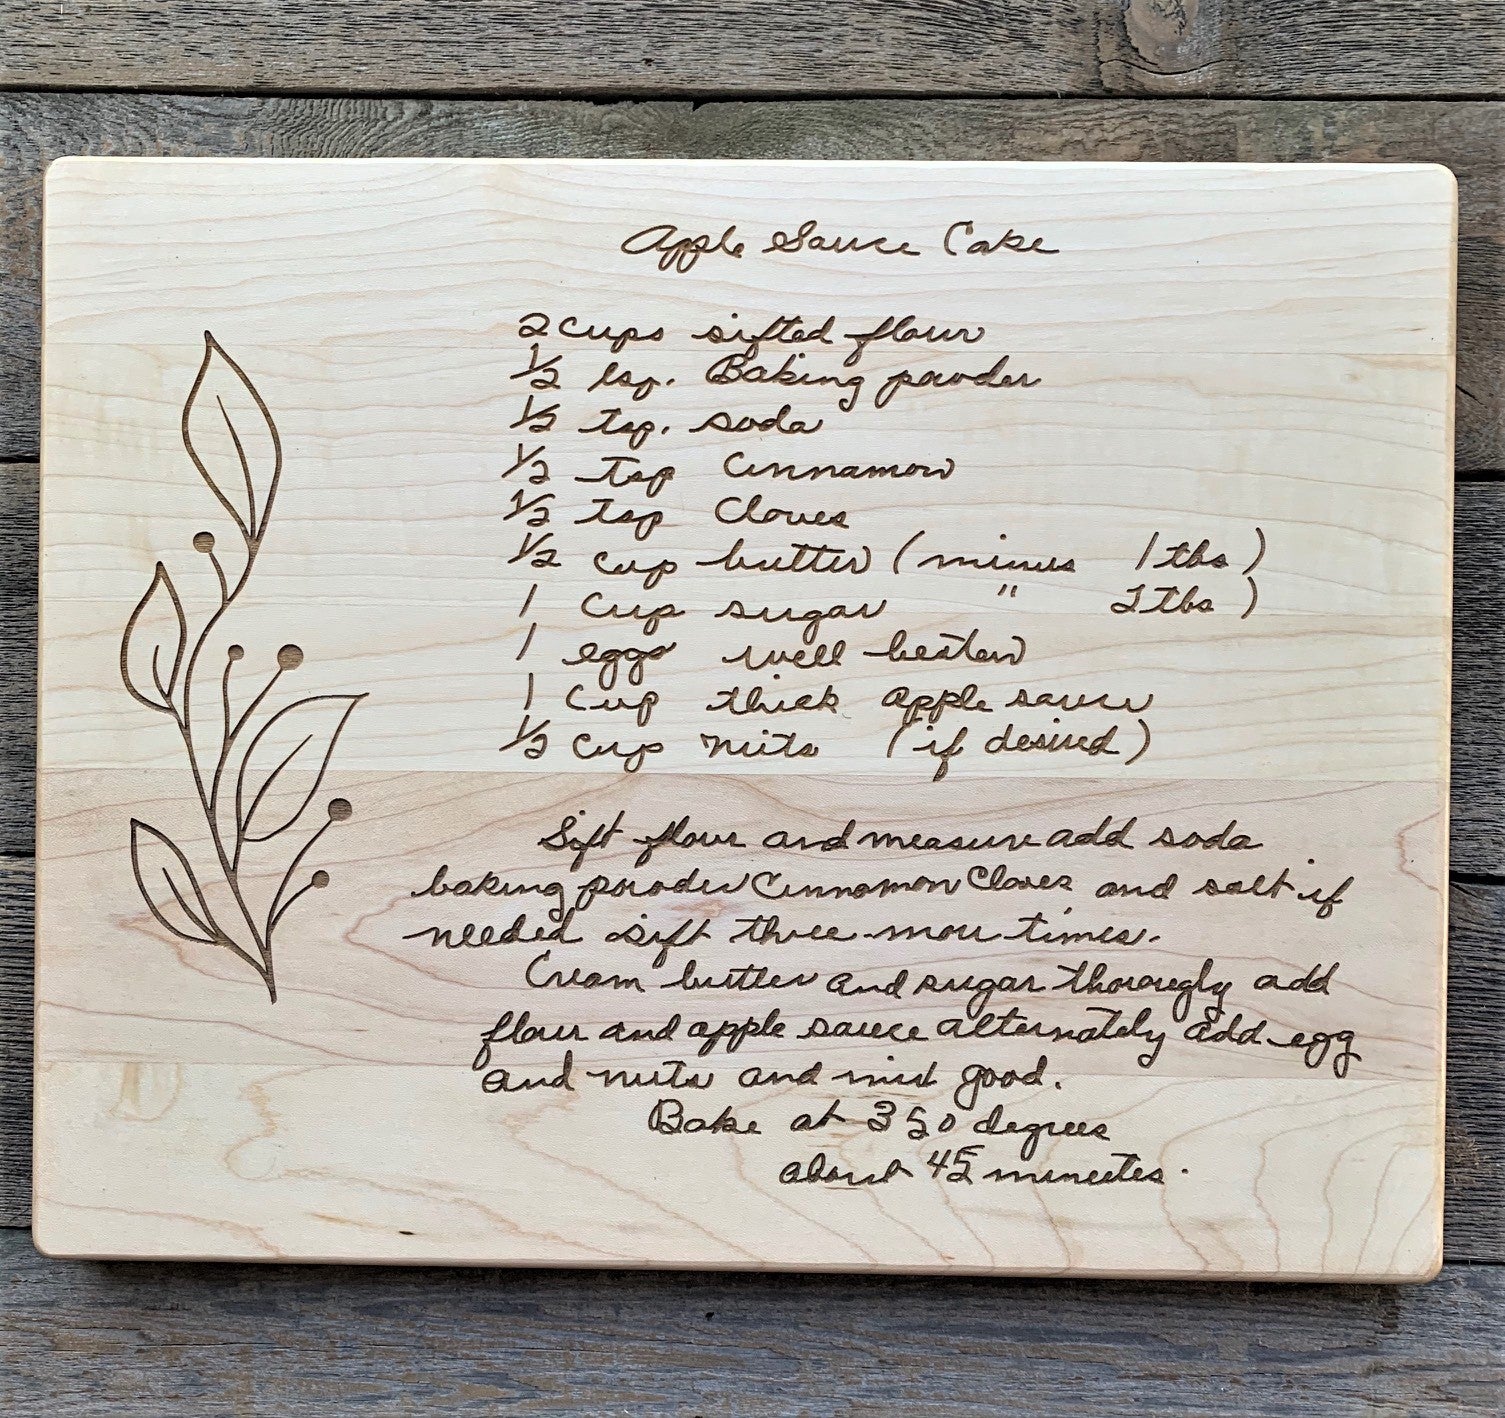 Apple Sauce Cake
2 cups sifted flour
1/2 tsp. Baking powder
1/2 tsp. soda
1/2 tsp Cinnamon
1/2 tsp Cloves
1/2 cup butter (minus 1 tbs)
1 cup sugar " 2 tbs)
1 eggs well beaten
1 cup thick apple sauce
1/2 cup nuts (if desired)
Sift flour and measure add soda
baking powder Cinnamon Cloves and salt if
needed sift three more times.
Cream butter and sugar thorougly add
flour and apple sauce alternately add egg
and nuts and mix good.
Bake at 350 degrees
about 45 minutes.